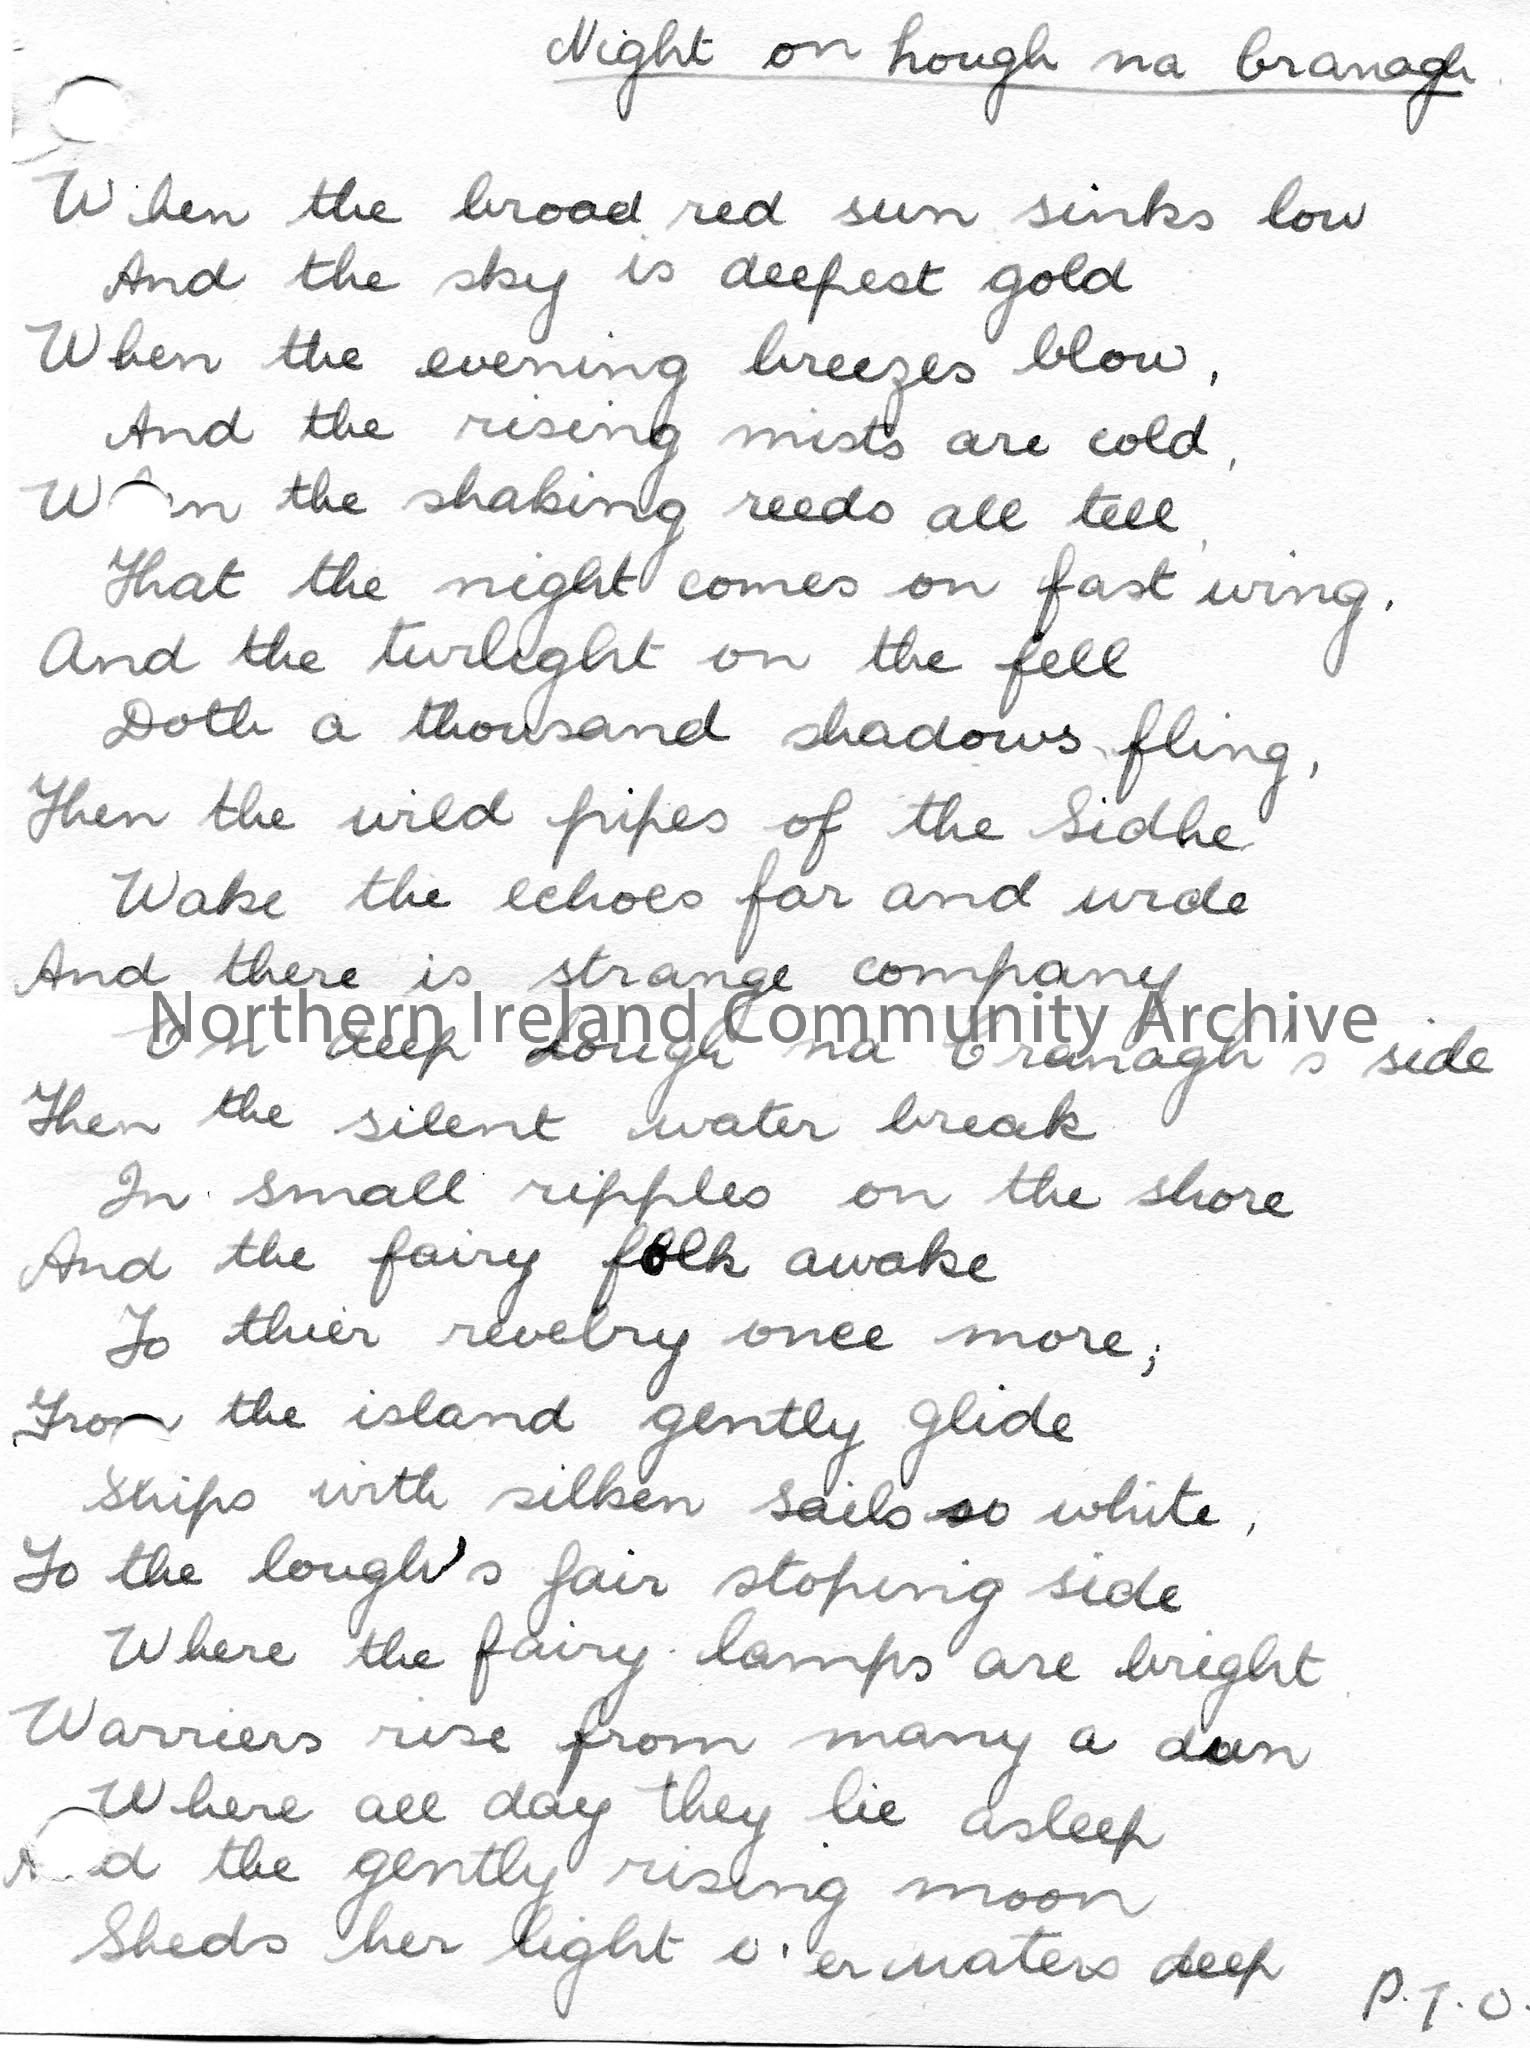 Night on Lough na Cranagh
When the broad red sun sinks low
And the sky is deepest gold
When the evening breezes blow,
And the rising mists are cold,
When the shaking reeds all tell,
That the night comes on fast wing.
And the twilight on the fell
Doth a thousand shadows fling,
Then the wild pipes of the Sidhe
Wake the echoes far and wide
And there is strange company
Northern Ireland Community Archive
On deep Lough na Cranagh's side
Then the silent water break
In small ripples on the shore
And the fairy folk awake
To thier revelry once more;
From the island gently glide
Ships with silken sails so white,
To the lough's fair sloping side
Where the fairy lamps are bright
Warriers rise from many a dun
Where all day they lie asleep
And the gently rising moon
Sheds her light o'er waters deep
P.T.O.